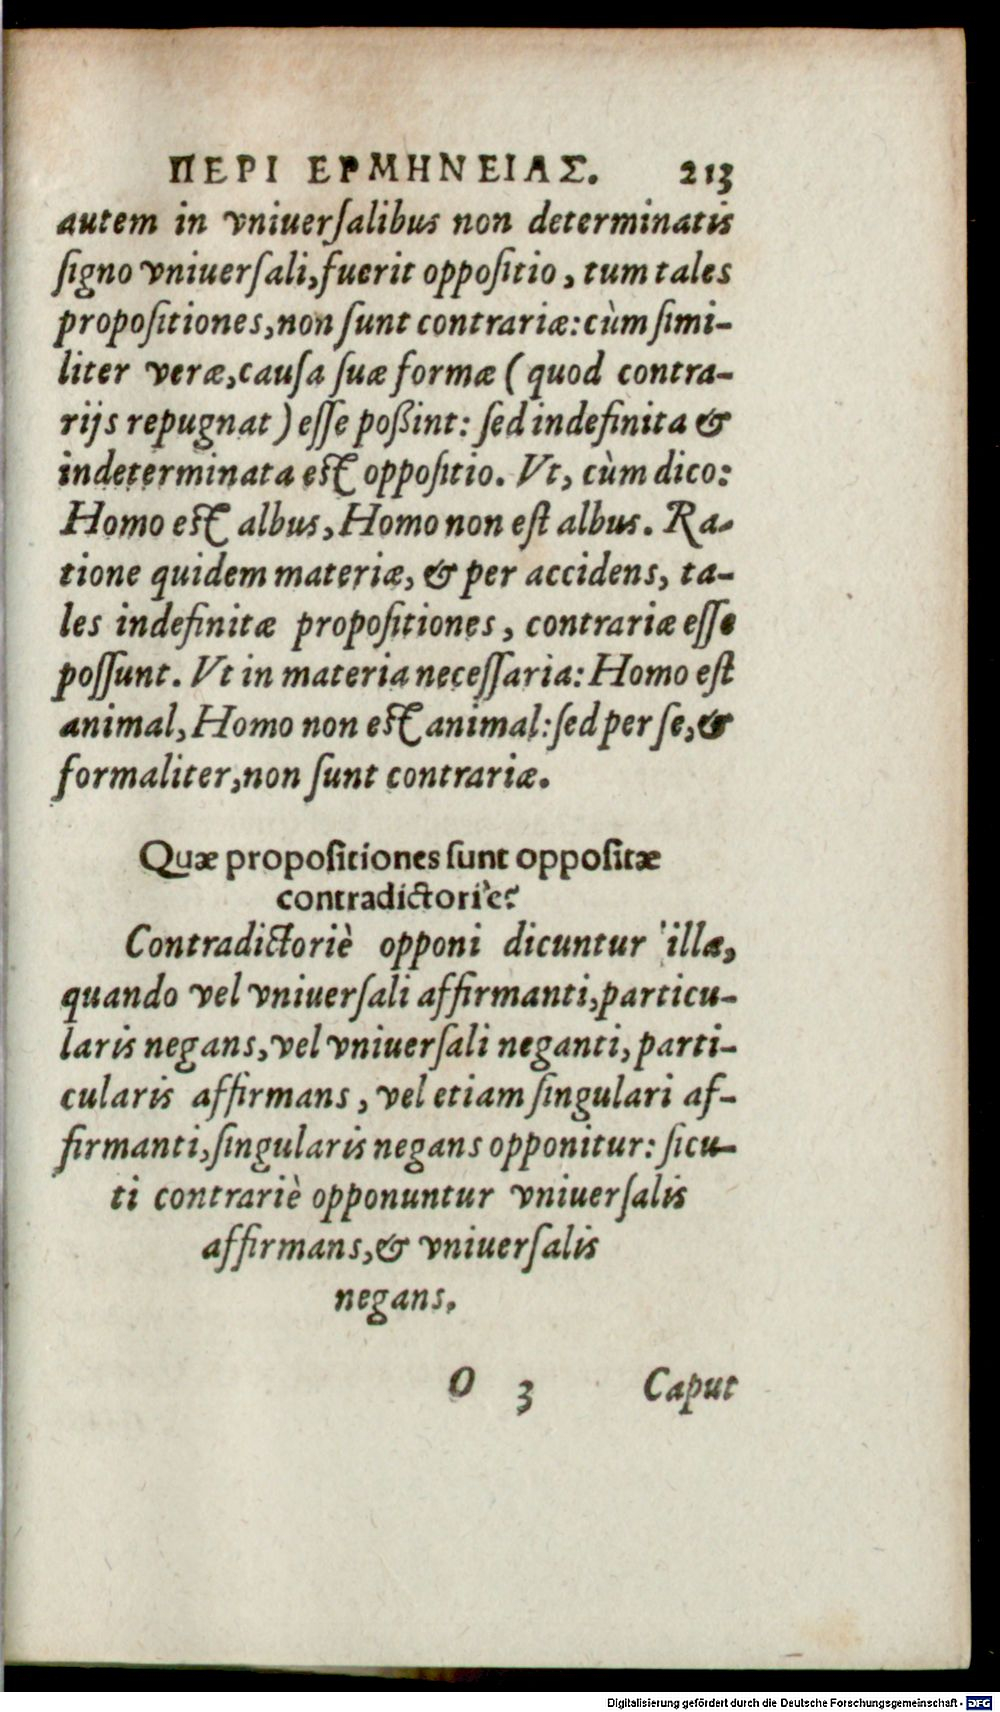 ΠΕΡΙ ΕΡΜΗΝΕΙΑΣ. 213
autem in vniuerſalibus non determinatis
ſigno vniuerſali, fuerit oppoſitio, tum tales
propoſitiones, non ſunt contrariæ: cùm ſimi-
liter veræ, cauſa ſuæ formæ (quod contra-
rijs repugnat) eſſe poßint: ſed indefinita &
indeterminata eſt oppoſitio. Vt, cùm dico:
Homo eſt albus, Homo non eſt albus. Ra-
tione quidem materiæ, & per accidens, ta-
les indefinitæ propoſitiones, contrariæ eſſe
poſſunt. Vt in materia neceſſaria: Homo eſt
animal, Homo non eſt animal: ſed per ſe, &
formaliter, non ſunt contrariæ.
Quæ propoſitiones ſunt oppoſitæ
contradictoriè?
Contradictoriè opponi dicuntur illæ,
quando vel vniuerſali affirmanti, particu-
laris negans, vel vniuerſali neganti, parti-
cularis affirmans, vel etiam ſingulari af-
firmanti, ſingularis negans opponitur: ſicu-
ti contrariè opponuntur vniuerſalis
affirmans, & vniuerſalis
negans.
O 3 Caput
Digitalisierung gefördert durch die Deutsche Forschungsgemeinschaft - DFG